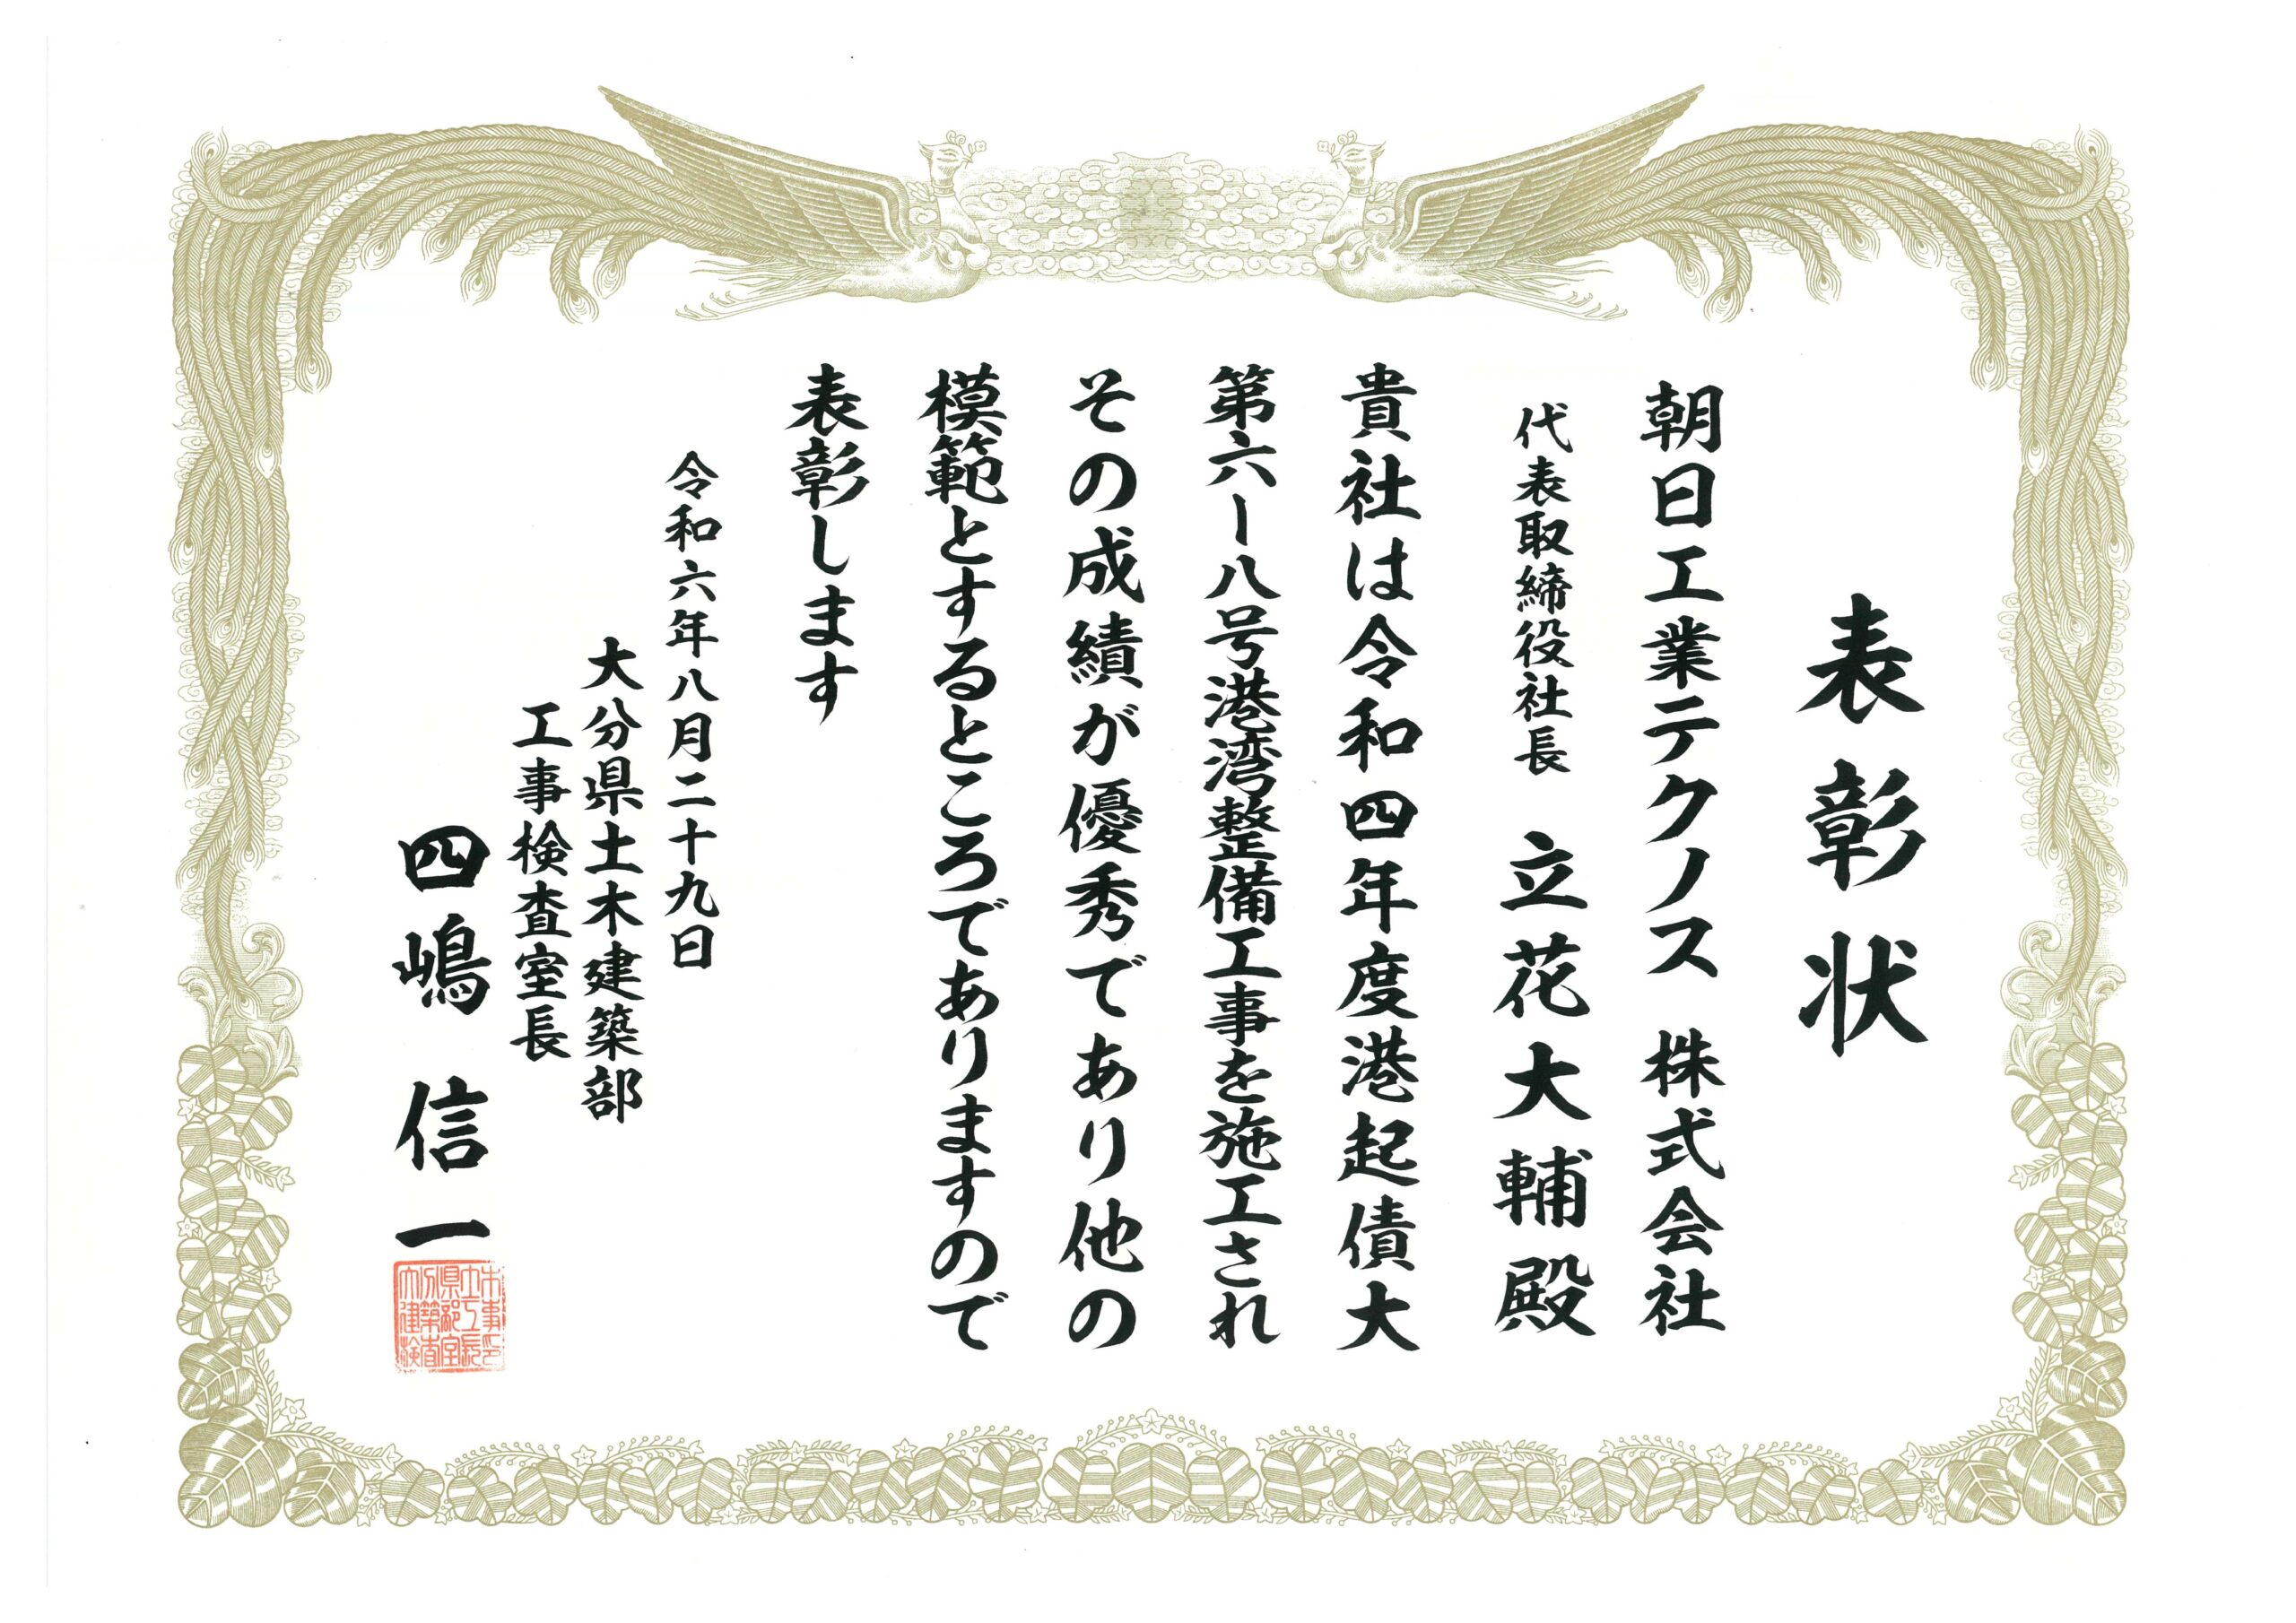 表彰状
朝日工業テクノス 株式会社
代表取締役社長 立花大輔殿
貴社は令和四年度港起債大
第六ー八号港湾整備工事を施工され
その成績が優秀であり他の
模範とするところでありますので
表彰します
令和六年八月二十九日
大分県土木建築部
工事検査室長
四嶋信一
大分県土木
建築部工事
検査室長印